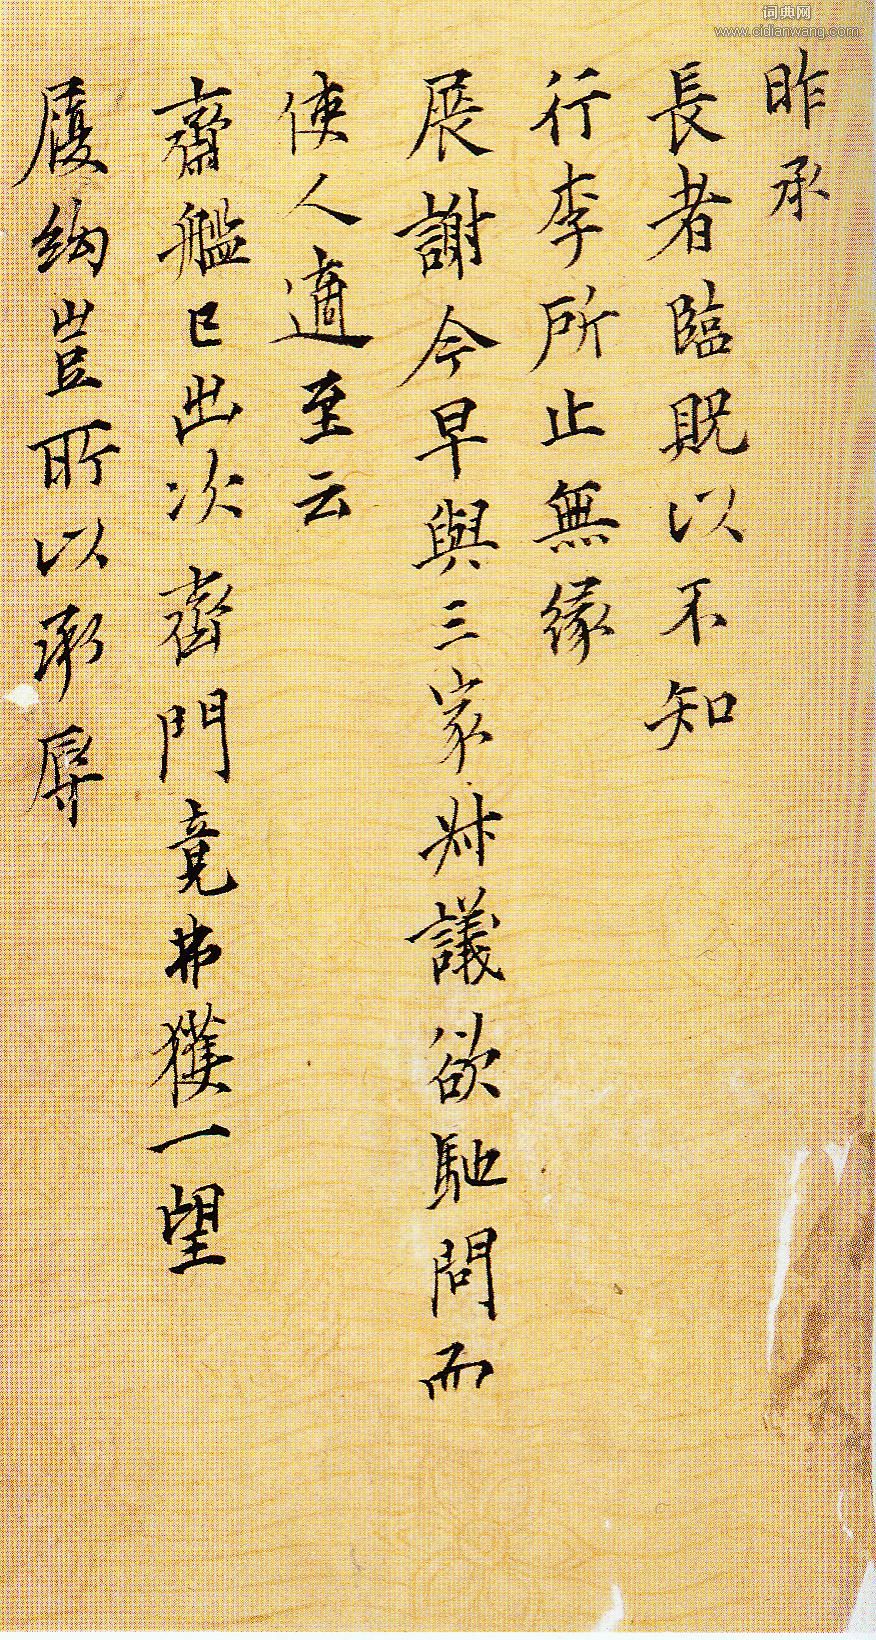 词典网
www.cidianwang.com
昨承
長者臨貺以不知
行李所止無緣
展謝今早與三家叔議欲馳問而
使人適至云
齋艦已出次齊門竟弗獲一望
履絇豈所以承辱